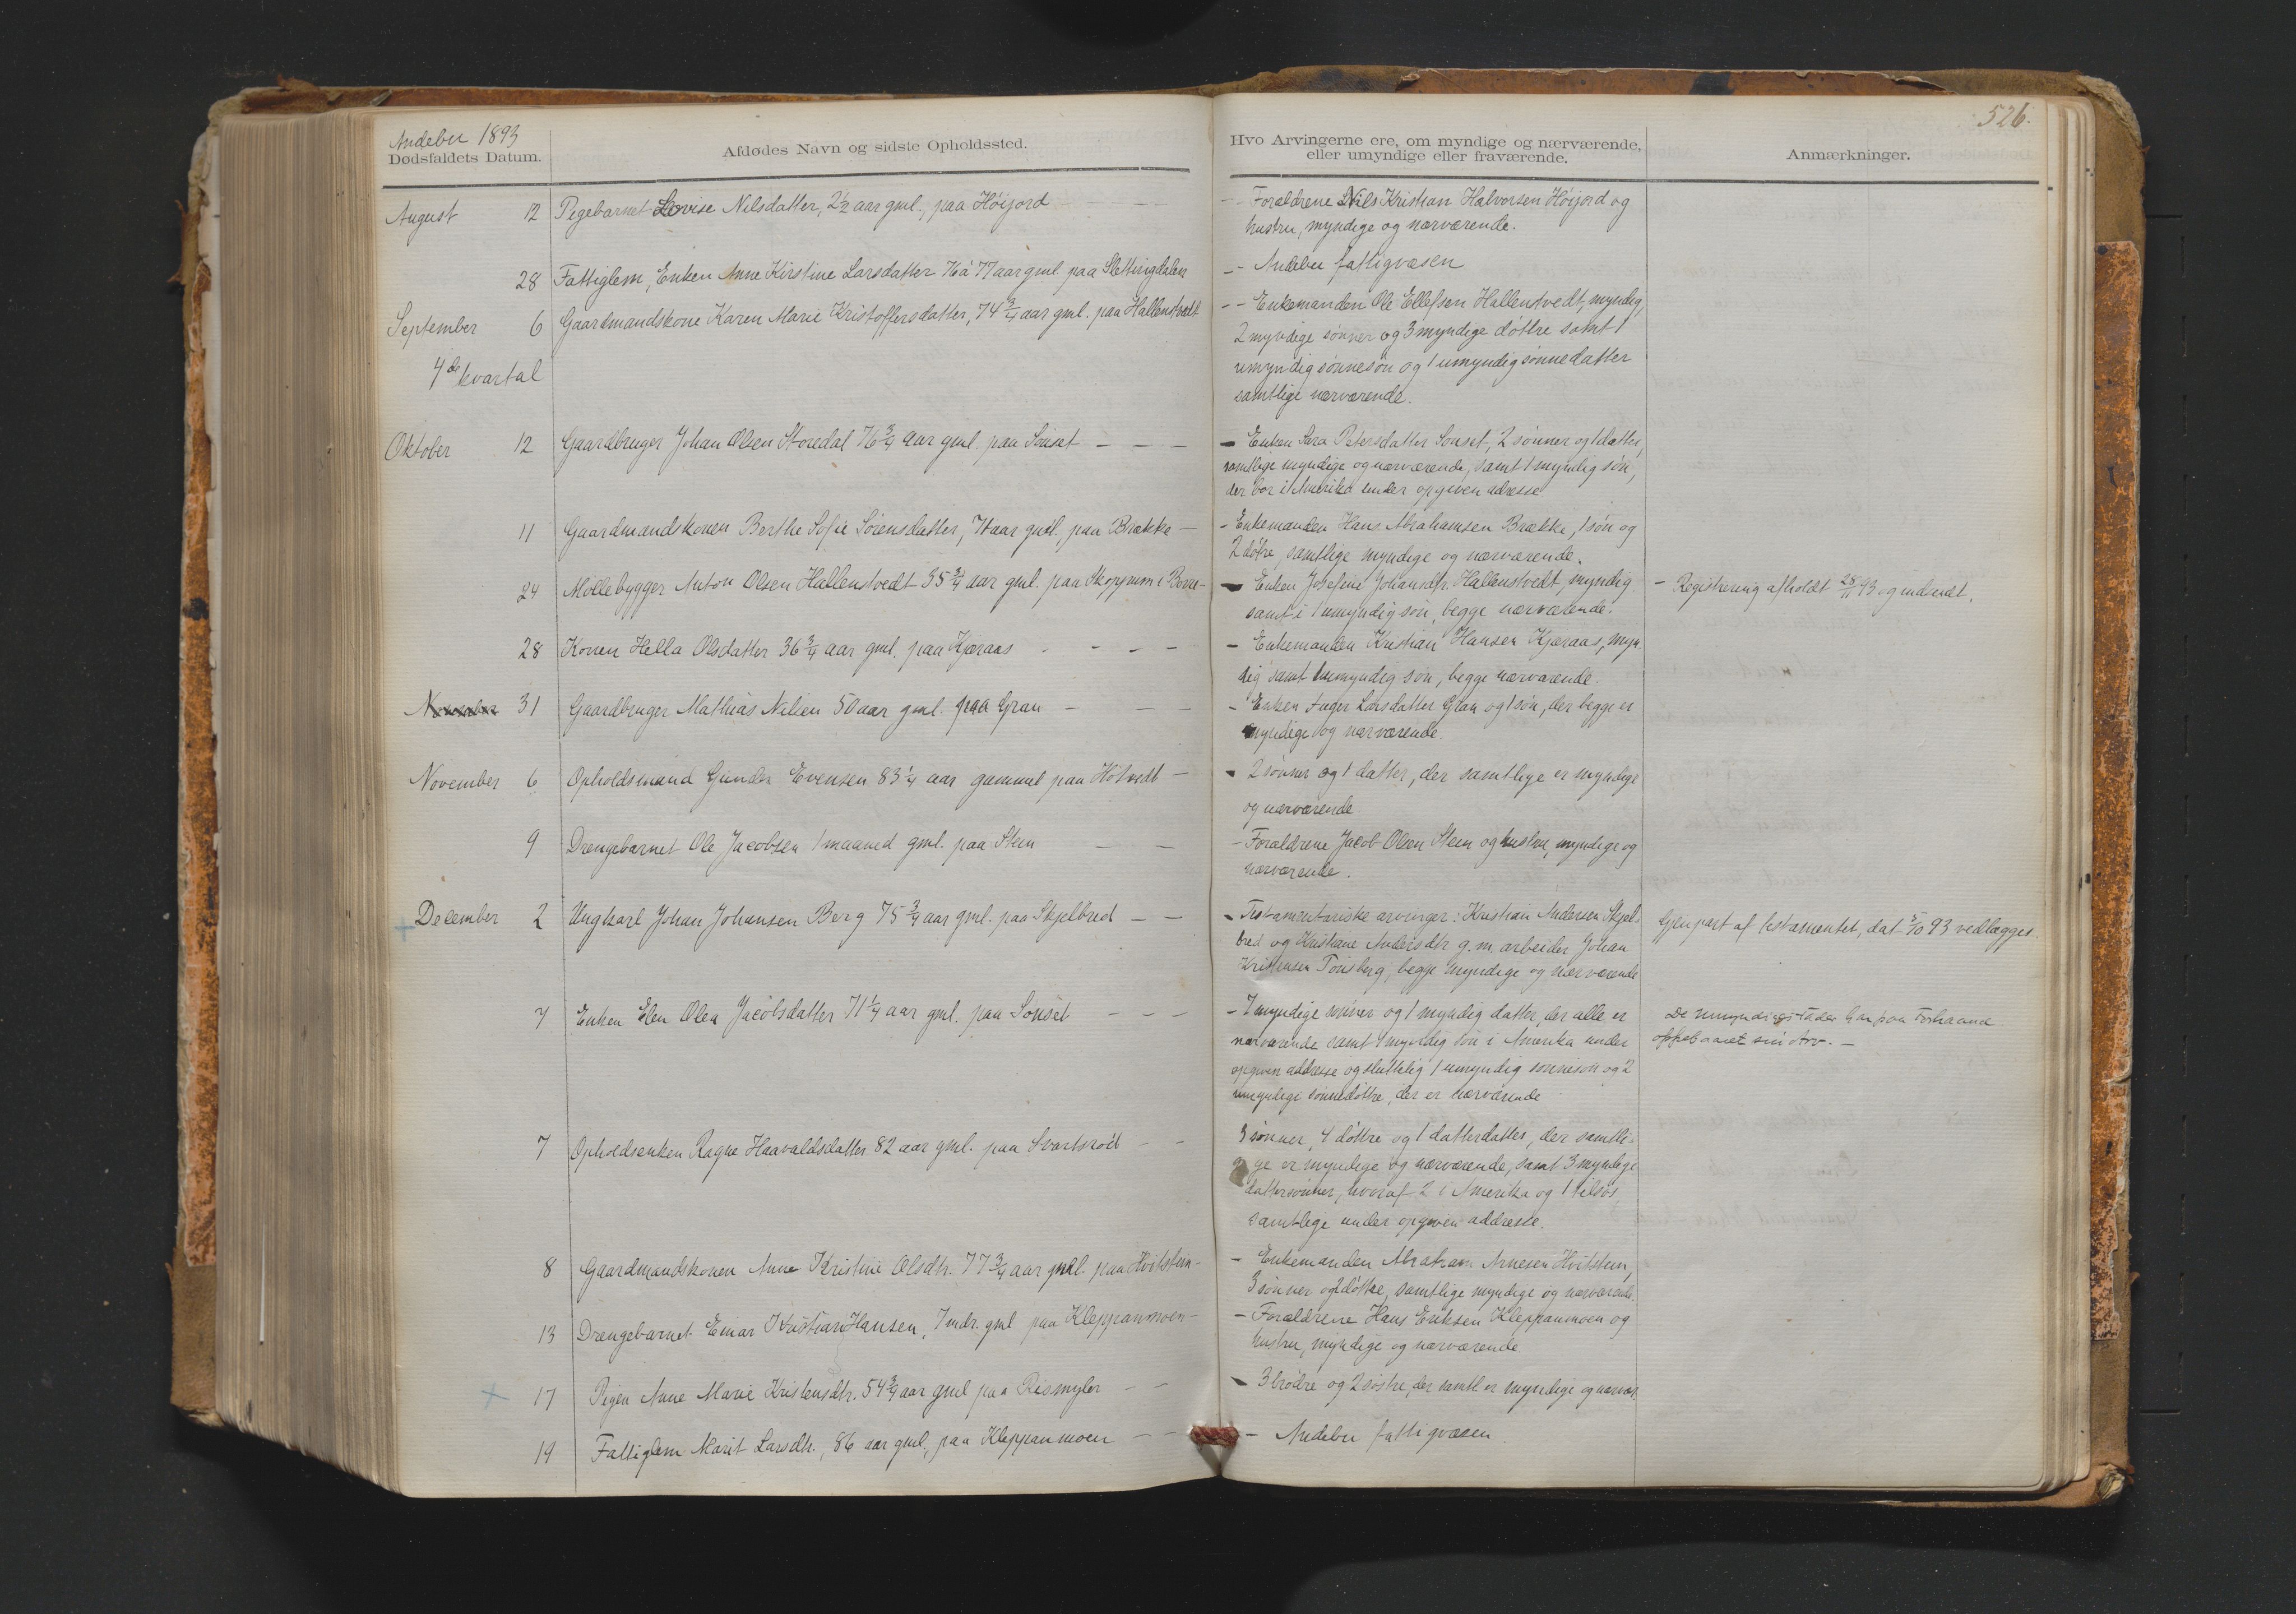 Andebu 1893
Dødsfaldets Datum.
Afdødes Navn og sidste Opholdssted.
Hvo Arvingerne ere, om myndige og nærværende,
eller umyndige eller fraværende.
Anmærkninger.
526.
August 12 Pigebarnet Lovise Nilsdatter, 2½ aar gml., paa Höijord — —
— Forældrene Nils Kristian Halvorsen Höijord og
hustru, myndige og nærværende.
28 Fattiglem, Enken Anne Kirstine Larsdatter 76 à 77 aar gml. paa Slettingdalen
— Andebu fattigvæsen
September 6 Gaardmandskone Karen Marie Kristoffersdatter, 74 ¾ aar gml. paa Hallenstvedt
— Enkemanden Ole Ellefsen Hallenstvedt, myndig,
2 myndige sönner og 3 myndige döttre samt 1
umyndig sönnesön og 1 umyndig sönnedatter
samtlige nærværende.
4de kvartal
Oktober 12 Gaardbruger Johan Olsen Storedal 76 ¾ aar gml. paa Sönset — — —
— Enken Sara Petersdatter Sönset, 2 sönner og 1 datter,
samtlige myndige og nærværende, samt 1 myndig sön,
der bor i Amerika under opgiven adresse
11 Gaardmandskonen Berthe Sofie Sörensdatter, 71 aar gml., paa Brække —
— Enkemanden Hans Abrahamsen Brække, 1 sön og
2 dötre, samtlige myndige og nærværende.
24 Möllebygger Anton Olsen Hallenstvedt 35 ¾ aar gml. paa Skoppum i Borre —
— Enken Josefine Johansdtr. Hallenstvedt, myndig
samt 1 umyndig sön, begge nærværende.
— Registrering afholdt 28/11 93 og indsendt.
28 Konen Hella Olsdatter 36 ¾ aar gml. paa Kjæraas — — — —
— Enkemanden Kristian Hansen Kjæraas, myn-
dig samt 1 umyndig sön, begge nærværende.
November 31 Gaardbruger Mathias Nilsen 50 aar gml. paa Gran — — —
— Enken Inger Larsdatter Gran og 1 sön, der begge er
myndige og nærværende.
November 6 Opholdsmand Gunder Evensen 83 ¼ aar gammel paa Hötvedt —
— 2 sönner og 1 datter, der samtlige er myndige
og nærværende.
9 Drengebarnet Ole Jacobsen 1 maaned gml. paa Steen — —
— Forældrene Jacob Olsen Steen og hustru, myndige og
nærværende.
December 2 Ungkarl Johan Johansen Berg 75 ¾ aar gml. paa Skjelbred — —
— Testamentariske arvinger: Kristian Andersen Skjel-
bred og Kristiane Andersdtr. g. m. arbeider Johan
Kristensen Tönsberg, begge myndige og nærværende
Gjenpart af testamentet, dat. 5/10 93 vedlægges
7 Enken Elen Olea Jacobsdatter 71 ¼ aar gml. paa Sönset — — —
myndige sönner og 1 myndig datter, der alle er
nærværende samt 1 myndig sön i Amerika under
opgiven addresse og sluttelig 1 umyndig sönnesön og 2
umyndige sönnedöttre, der er nærværende
De umyndiges Fader har paa Forhaand
oppebaaret sin Arv. —
7 Opholdsenken Ragne Haavaldsdatter 82 aar gml. paa Svartsröd — —
3 sönner, 4 döttre og 1 datterdatter, der samtli-
ge er myndige og nærværende, samt 3 myndige
dattersönner, hvoraf 2 i Amerika og 1 tilsös
samtlige under opgiven addresse.
8 Gaardmandskonen Anne Kristine Olsdtr. 77 ¾ aar gml. paa Hvitstein —
— Enkemanden Abraham Arnesen Hvitstein,
3 sönner og 2 döttre, samtlige myndige og nærværende.
13 Drengebarnet Einar Kristian Hansen, 7 mdr. gml paa Kleppanmoen —
— Forældrene Hans Eriksen Kleppanmoen og
hustru, myndige og nærværende.
17 Pigen Anne Marie Kristensdtr. 54 ¾ aar gml paa Rismyhr — —
— 3 brödre og 2 söstre, der samtl. er myndige og nærvær.
19 Fattiglem Marit Larsdtr., 86 aar gml., paa Kleppanmoen — —
— Andebu fattigvæsen.